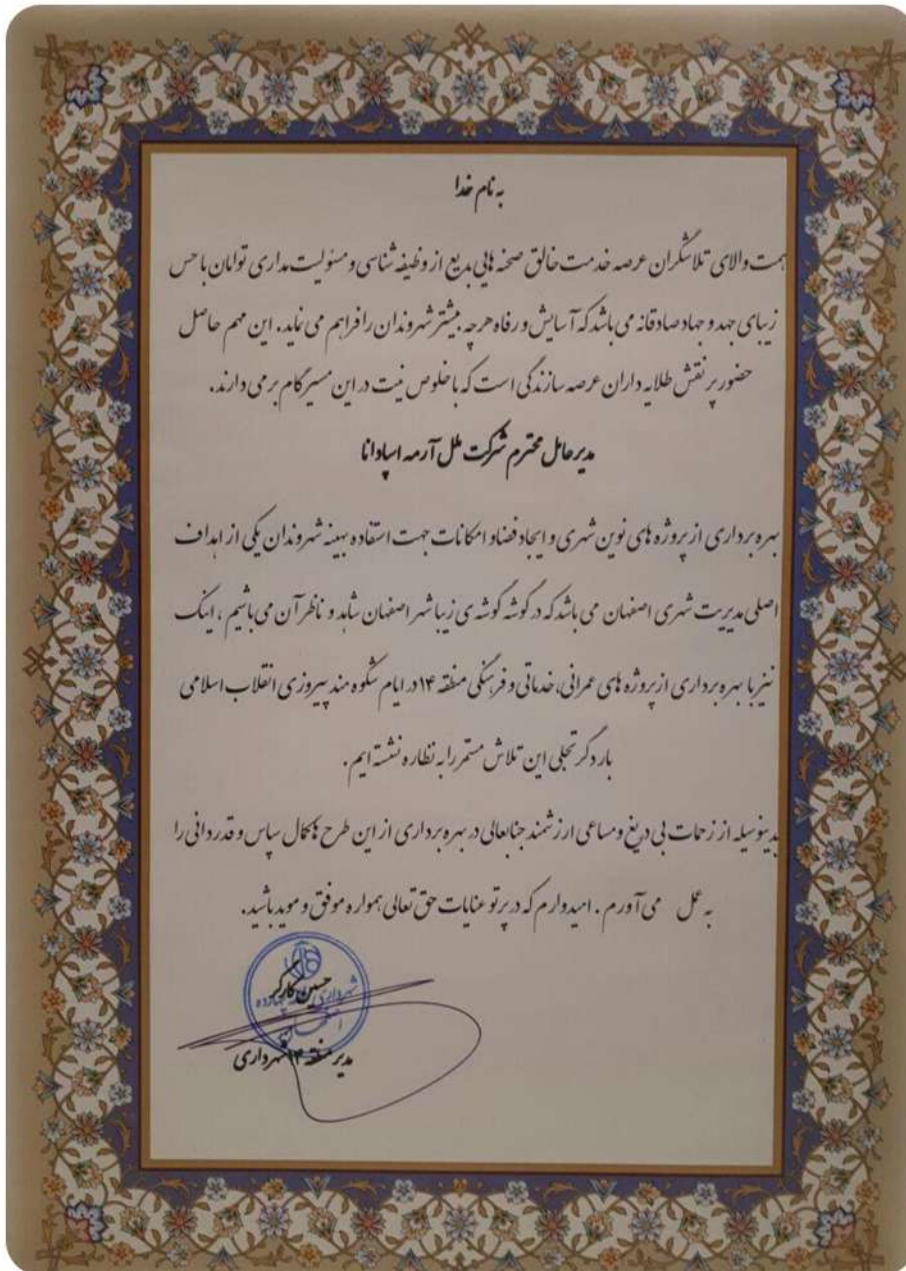 به نام خدا
همت والای تلاشگران عرصه خدمت خالق صحنه هایی بدیع از وظیفه شناسی و مسئولیت مداری توامان با حس
زیبای جهد و جهاد صادقانه می باشد که آسایش و رفاه هرچه بیشتر شهروندان را فراهم می نماید. این مهم حاصل
حضور پر نقش طلایه داران عرصه سازندگی است که با خلوص نیت در این مسیر گام برمی دارند.
مدیرعامل محترم شرکت ملل آرمه اسپادانا
بهره برداری از پروژه های نوین شهری و ایجاد فضا و امکانات جهت استفاده بهینه شهروندان یکی از اهداف
اصلی مدیریت شهری اصفهان می باشد که در گوشه گوشه ی زیبا شهر اصفهان شاهد و ناظر آن می باشیم ، اینک
نیز با بهره برداری از پروژه های عمرانی، خدماتی و فرهنگی منطقه ۱۴ در ایام شکوه مند پیروزی انقلاب اسلامی
بار دگر تجلی این تلاش مستمر را به نظاره نشسته ایم.
بدینوسیله از زحمات بی دریغ و مساعی ارزشمند جنابعالی در بهره برداری از این طرح ها کمال سپاس و قدردانی را
به عمل می آورم . امیدوارم که در پرتو عنایات حق تعالی همواره موفق و موید باشید.
حسین کارگر
مدیر منطقه ۱۴ شهرداری